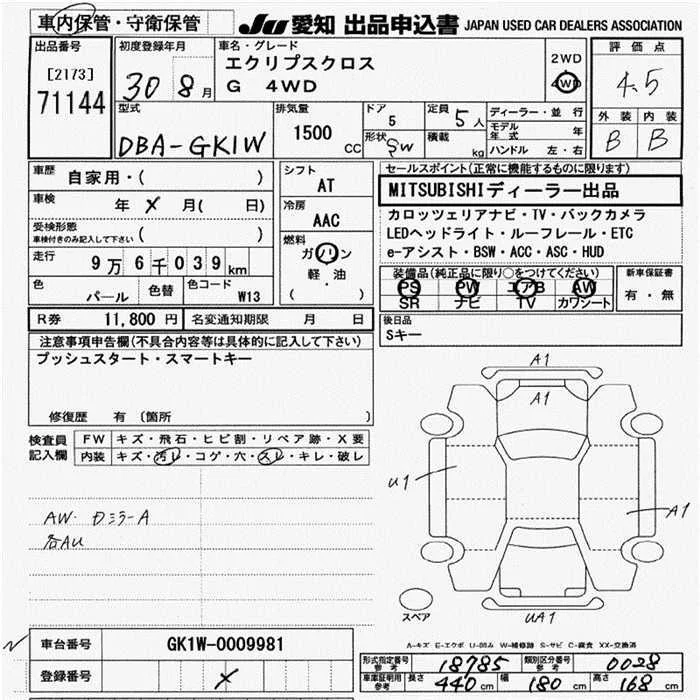 車内保管・守衛保管
JU 愛知 出品申込書 JAPAN USED CAR DEALERS ASSOCIATION
出品番号
[2173]
71144
初度登録年月
30 8月
車名・グレード
エクリプスクロス
G 4WD
2WD
4WD
評価点
4.5
外装 内装
B B
型式
DBA-GK1W
排気量
1500 CC
ドア
5
形状
SW
定員
5人
積載 kg
ディーラー・並行
モデル年式 年
ハンドル 左・右
車歴
自家用・( )
車検
年 X 月( 日)
受検形態
車検付きのみ記入して下さい ( )
走行
9万6千039km
色
パール
色替
色コード
W13
シフト
AT
冷房
AAC
燃料
ガソリン
軽・油
( )
セールスポイント(正常に機能するものに限ります)
MITSUBISHIディーラー出品
カロッツェリアナビ・TV・バックカメラ
LEDヘッドライト・ルーフレール・ETC
e-アシスト・BSW・ACC・ASC・HUD
装備品(純正品に限り○をつけてください)
PS PW エアB AW
SR ナビ TV カワシート
新車保証書
有・無
R券 11,800 円 名変通知期限 月 日
後日品
Sキー
注意事項申告欄(不具合内容等は具体的に記入して下さい)
プッシュスタート・スマートキー
修復歴 有 〔箇所 〕
検査員記入欄
FW キズ・飛石・ヒビ割・リペア跡・X要
内装 キズ・汚レ・コゲ・穴・スレ・キレ・破レ
AW・Dミラー A
各AU
A1
A1
U1
A1
UA1
スペア
A-キズ E-エクボ U-凹み W-補修跡 S-サビ C-腐食 XX-交換済
車台番号 GK1W-0009981
登録番号 X
形式指定番号 参考 18785 類別区分番号 参考 0028
車庫証明用 参考 長さ 440 cm 幅 180 cm 高さ 168 cm